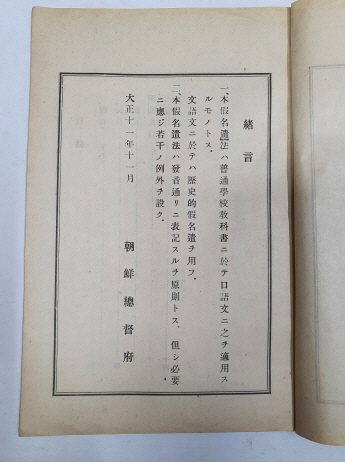 緒言
一、本假名遣法ハ普通學校敎科書ニ於テ口語文ニ之ヲ適用ス
ルモノトス。
文語文ニ於テハ歷史的假名遣ヲ用フ。
二、本假名遣法ハ發音通リニ表記スルヲ原則トス、但シ必要
ニ應ジ若干ノ例外ヲ設ク。
大正十一年十一月
朝鮮總督府